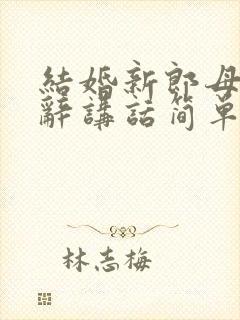 結婚新郎母
辭講話简单
林志梅